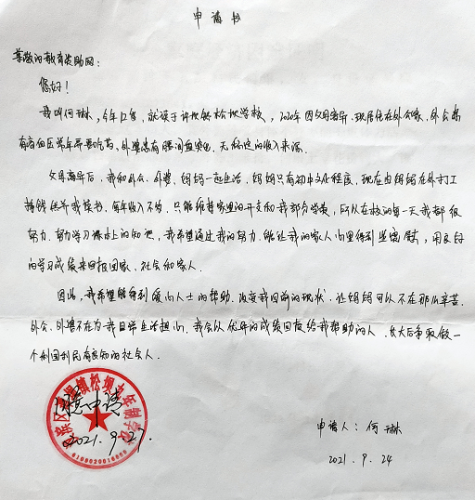 申请书
尊敬的教育资助网：
您好！
我叫何琳，今年12岁，就读于许池镇松坝学校，2020年因父母离异，现居住在外公家，外公患
有高血压常年需要吃药，外婆患有腰间盘突出，无稳定的收入来源。
父母离异后，我和外公、外婆、妈妈一起生活，妈妈只有初中文化程度，现在由妈妈在外打工
挣钱供养我读书，每年收入不多，只能维持家里的开支和我部分学费，所以在校的每一天我都很
努力，努力学习课本上的知识，我希望通过我的努力，能让我的家人心里得到些安慰，用良好
的学习成绩来回报国家、社会和家人。
因此，我希望能得到爱心人士的帮助，改变我目前的现状，让妈妈可以不在那么辛苦，
外公、外婆不在为我日常生活担心，我会以优异的成绩回报给我帮助的人，长大后争取做一
个利国利民有良知的社会人。
镇松坝九年制学校
2021.9.27.
申请人：何琳
2021.9.24